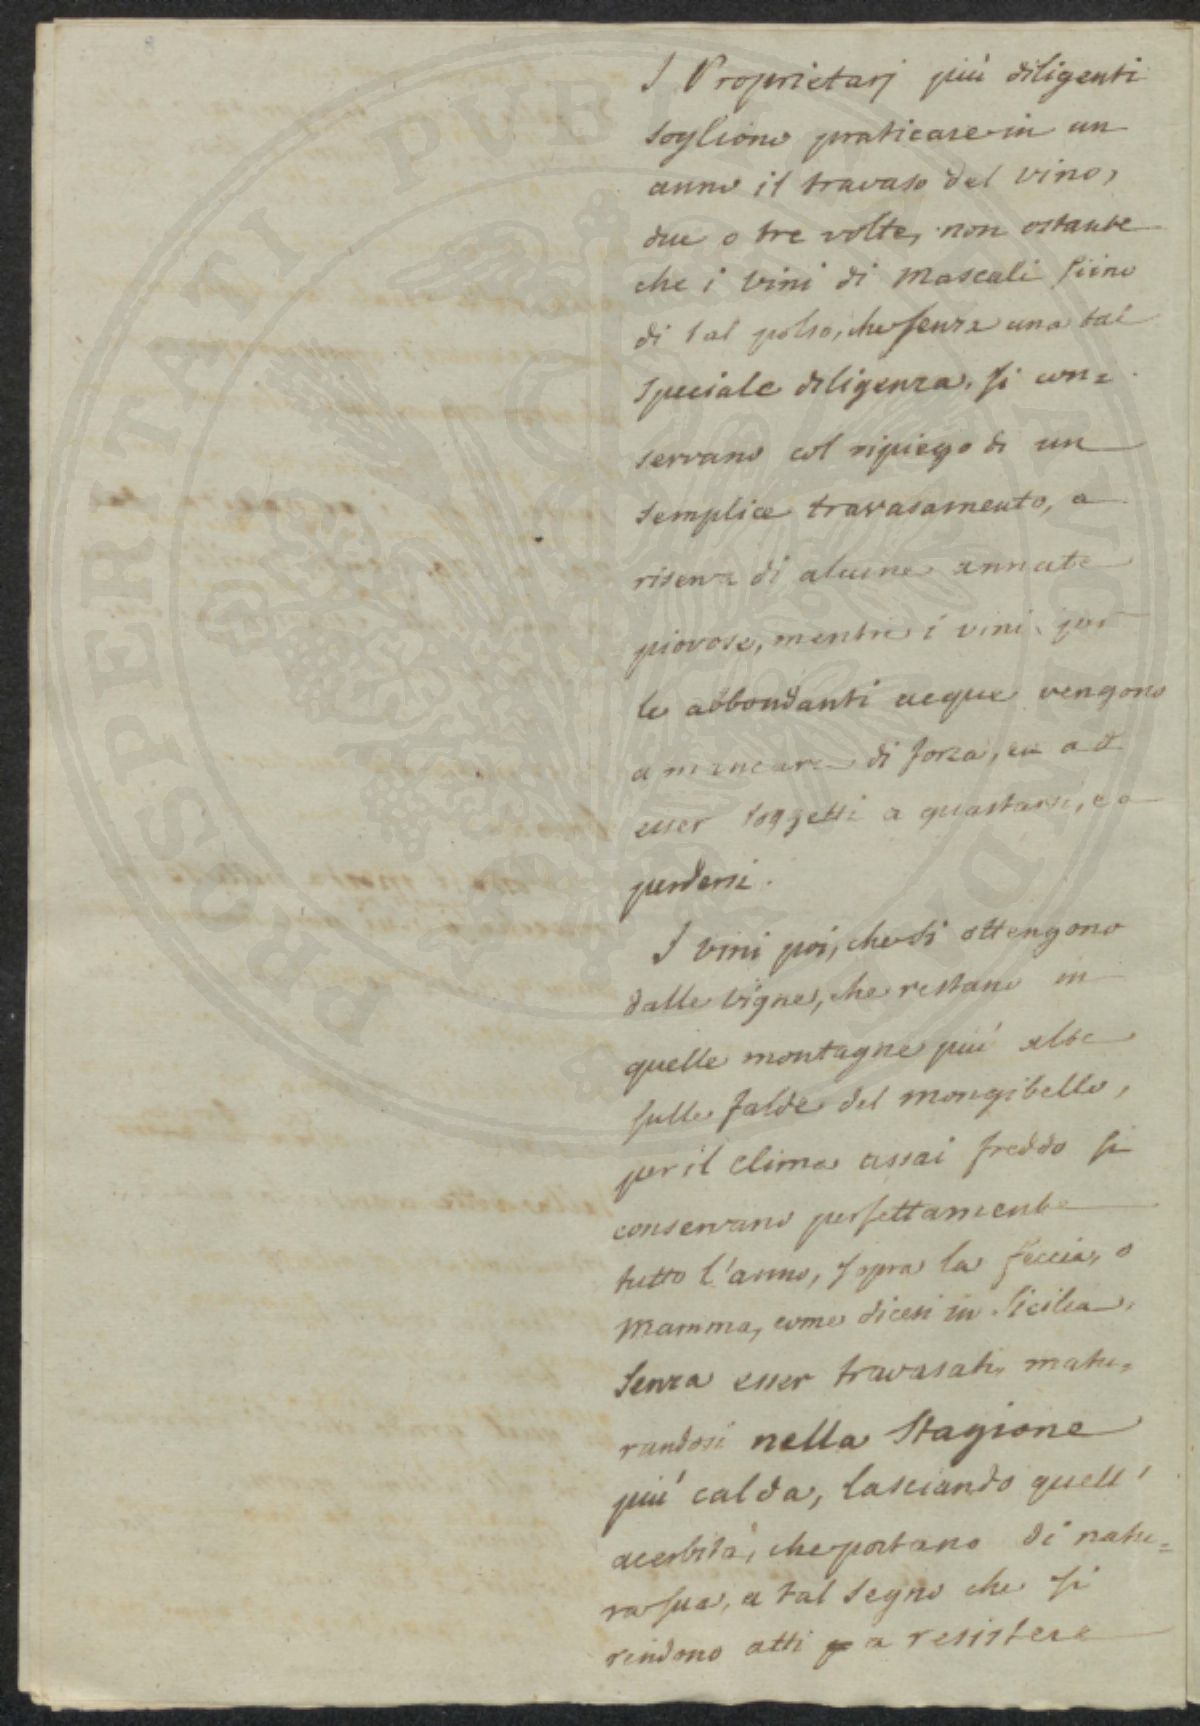 I Proprietarj più diligenti
sogliono praticare in un
anno il travaso del vino,
due o tre volte, non ostante
che i vini di Mascali siino
di tal polso, che senza una tal
speciale diligenza, si con=
servano col ripiego di un
semplice travasamento, a
riserva di alcune annate
piovose, mentre i vini per
le abbondanti acque vengono
a mancare di forza, ed
esser soggetti a guastarsi, e a
perdersi.
I vini poi, che si ottengono
dalle vigne, che restano in
quelle montagne più alte
sulle falde del mongibello,
per il clima assai freddo si
conservano perfettamente
tutto l'anno, sopra la feccia, o
Mamma, come dicesi in Sicilia,
senza esser travasati, matu=
randosi nella Stagione
più calda, lasciando quell'
acerbità, che portano di natu=
ra sua, a tal segno che si
rendono atti a resistere
PROSPERITATI PUBLICAE AUGENDAE